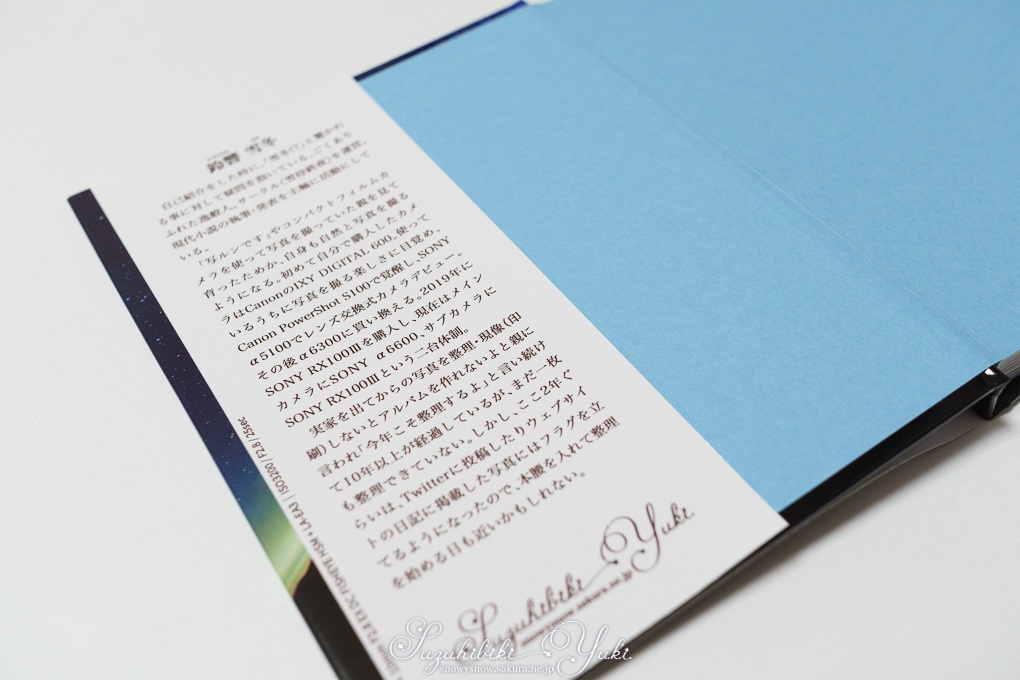 鈴響 雪冬
自己紹介をした時に、「雪冬!?」と驚かれ
る事に対して疑問を抱いている、ごくあり
ふれた逸般人。サークル〈雪待終夜〉を運営。
現代小説の執筆・発表を主軸に活動にして
いる。
「写ルンです」やコンパクトフィルムカ
メラを使って写真を撮っていた親を見て
育ったためか、自身も自然と写真を撮る
ようになる。初めて自分で購入したカメ
ラはCanonのIXY DIGITAL 600。使って
いるうちに写真を撮る楽しさに目覚め、
Canon PowerShot S100で覚醒し、SONY
α5100でレンズ交換式カメラデビュー。
その後α6300に買い換える。2019年に
SONY RX100Ⅲを購入し、現在はメイン
カメラにSONY α6600、サブカメラに
SONY RX100Ⅲという二台体制。
実家を出てからの写真を整理・現像(印
刷)しないとアルバムを作れないよと親に
言われ「今年こそ整理するよ」と言い続け
て10年以上が経過しているが、まだ一枚
も整理できていない。しかし、ここ2年ぐ
らいは、Twitterに投稿したりウェブサイ
トの日記に掲載した写真にはフラグを立
てるようになったので、本腰を入れて整理
を始める日も近いかもしれない。
Suzuhibiki Yuki
snowysnow.sakura.ne.jp
F2.8 EX DC FISHEYE HSM + LA-EA3 | ISO3200 / F2.8 / 25sec
Suzuhibiki Yuki
snowysnow.sakura.ne.jp